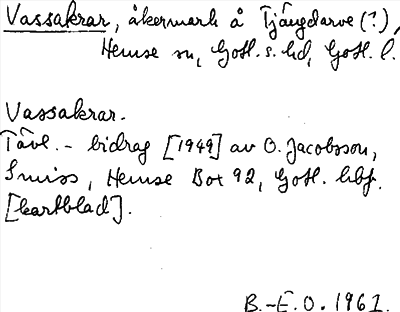 Vassakrar, åkermark å Tjängdarve (?),
Hemse sn, Gotl. s. hd, Gotl. l.
Vassakrar.
Tävl.-bidrag [1949] av O. Jacobsson,
Smiss, Hemse Box 92, Gotl. hbf.
[kartblad].
B.-E.O. 1961.